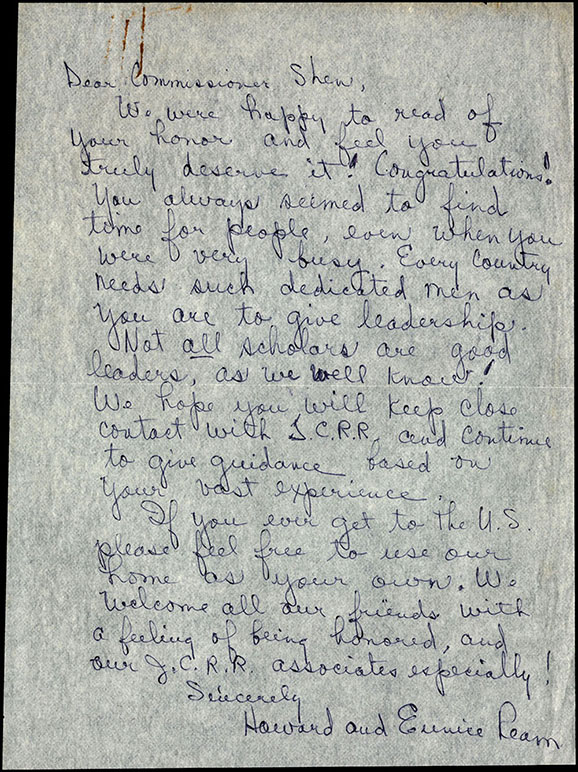 Dear Commissioner Shen,
We were happy to read of
your honor and feel you
truly deserve it! Congratulations!
You always seemed to find
time for people, even when you
were very busy. Every country
needs such dedicated men as
you are to give leadership.
Not all scholars are good
leaders, as we well know!
We hope you will keep close
contact with J.C.R.R. and continue
to give guidance based on
your vast experience.
If you ever get to the U.S.
please feel free to use our
home as your own. We
welcome all our friends with
a feeling of being honored, and
our J.C.R.R. associates especially!
Sincerely
Howard and Eunice Ream